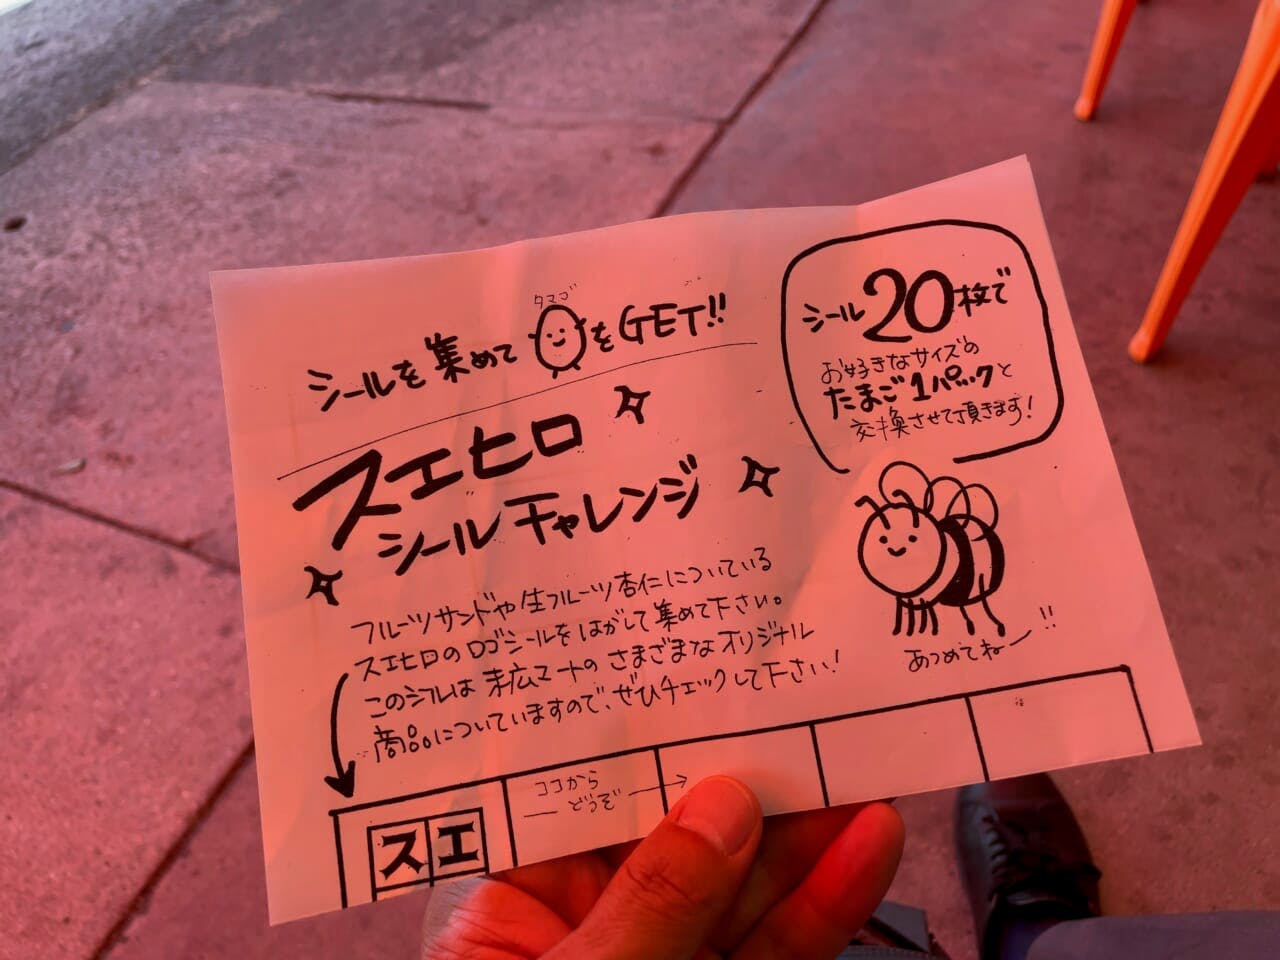 シールを集めて
タマゴ
をGET!!
スエヒロ
シールチャレンジ
シール20枚で
お好きなサイズの
たまご1パックと
交換させて頂きます!
あつめてねー!!
フルーツサンドや生フルーツ杏仁についている
スエヒロのロゴシールをはがして集めて下さい。
このシールは末広マートのさまざまなオリジナル
商品についていますので、ぜひチェックして下さい!
ココから
どうぞ
スエ